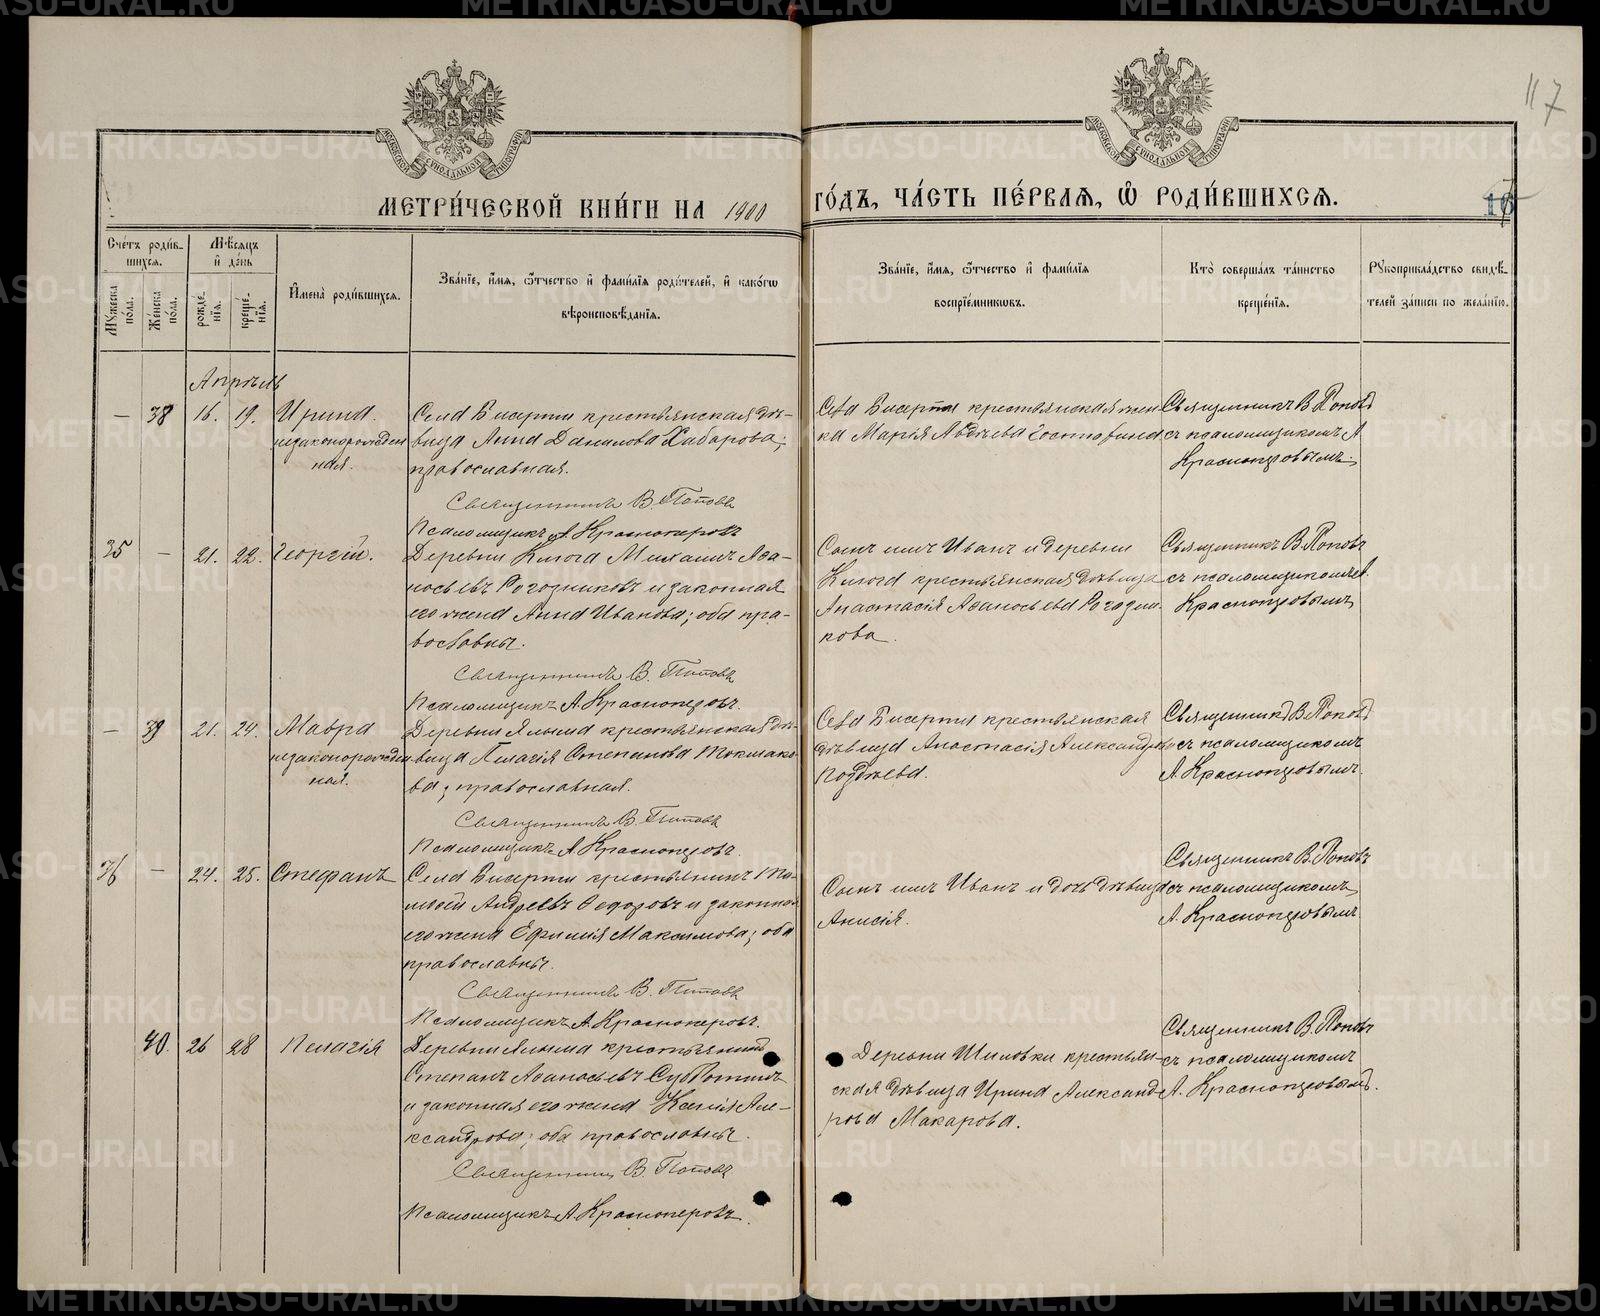 117
МЕТРИ́ЧЕСКОЙ КНИ́ГИ НА 1900
ГО́ДЪ, ЧА́СТЬ ПЕ́РВАѦ, Ѡ҆ РОДИ́ВШИХСѦ.
16
Сче́тъ роди́в-
шихсѧ.
Мꙋ́жеска по́ла.
Же́нска по́ла.
Мѣ́сѧцъ
и҆ де́нь
рожде́-
нїѧ.
креще́-
нїѧ.
И҆мена̀ роди́вшихсѧ.
Зва́нїе, и҆́мѧ, ѻ҆́тчество и҆ фами́лїѧ роди́телей, и҆ како́гѡ
вѣроисповѣ́данїѧ.
Зва́нїе, и҆́мѧ, ѻ҆́тчество и҆ фами́лїѧ
воспрїе́мниковъ.
Кто̀ соверша́лъ та́инство
креще́нїѧ.
Рꙋкоприкла́дство свидѣ́-
телей за́писи по жела́нїю.
Апрѣль
— 38 16. 19. Ирина
незаконорожден
ная.
Села Бисерти крестьянская дѣ-
вица Анна Данилова Хабарова;
православная.
Священникъ В. Поповъ
Псаломщикъ А. Красноперовъ
Села Бисерти крестьянская жен
ка Марія Авдѣева
Священникъ В. Поповъ
съ псаломщикомъ А
Красноперовымъ.
35 — 21. 22. Георгій.
Деревни Киюга Михаилъ Аѳа-
носьевъ Рогозниковъ и законная
его жена Анна Иванова; оба пра-
вославны.
Священникъ В. Поповъ
Псаломщикъ А. Красноперовъ.
Сынъ ихъ Иванъ и деревни
Киюга крестьянская дѣвица
Анастасія Аѳаносьева Рогозни-
кова.
Священникъ В. Поповъ
съ псаломщикомъ А.
Красноперовымъ
— 39 21. 24. Мавра
незаконорожден
ная.
Деревни Яныша крестьянская дѣ-
вица Пелагія Степанова Токмако-
ва; православная.
Священникъ В. Поповъ
Псаломщикъ А. Красноперовъ.
Села Бисерти крестьянская
дѣвица Анастасія Александрова
Поздѣева.
Священникъ В. Поповъ
съ псаломщикомъ
А. Красноперовымъ.
36 — 24. 25. Стефанъ
Села Бисерти крестьянинъ Ти-
мофей Андреевъ Ѳедоровъ и законная
его жена Ефимія Максимова; оба
православны.
Священникъ В. Поповъ
Псаломщикъ А. Красноперовъ.
Сынъ ихъ Иванъ и дочь дѣвица
Анисія.
Священникъ В. Поповъ
съ псаломщикомъ
А. Красноперовымъ
40. 26 28 Пелагія
Деревни Яныша крестьянинъ
Степанъ Аѳаносьевъ Субботинъ
и законная его жена Ксенія Але-
ксандрова; оба православны.
Священникъ В. Поповъ
Псаломщикъ А. Красноперовъ.
Деревни Шиловки крестьян-
ская дѣвица Ирина Александ-
рова Макарова.
Священникъ В. Поповъ
съ псаломщикомъ
А. Красноперовымъ.
METRIKI.GASO-URAL.RU